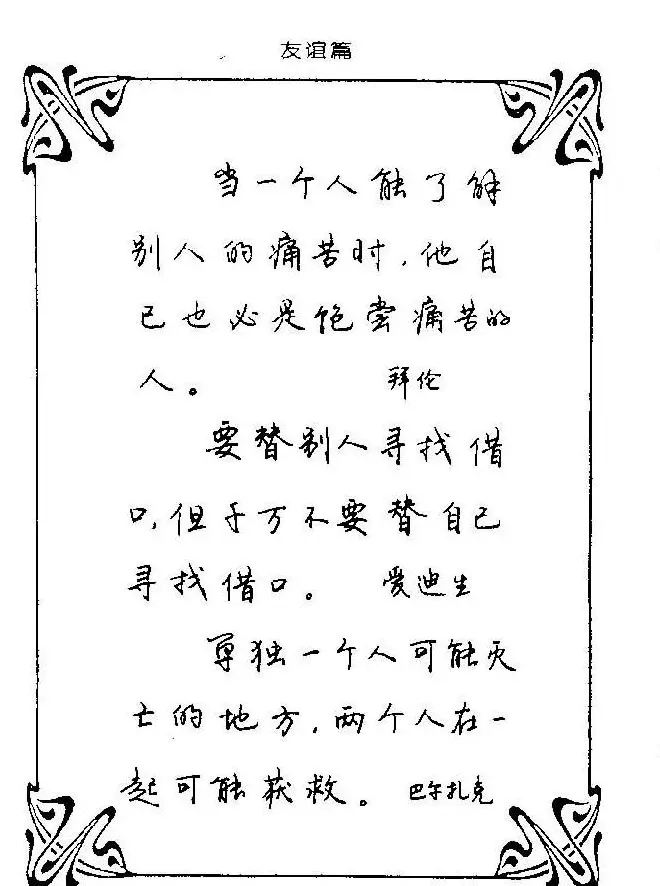 友谊篇
当一个人能了解
别人的痛苦时，他自
己也必是饱尝痛苦的
人。 拜伦
要替别人寻找借
口，但千万不要替自己
寻找借口。 爱迪生
单独一个人可能灭
亡的地方，两个人在一
起可能获救。 巴尔扎克